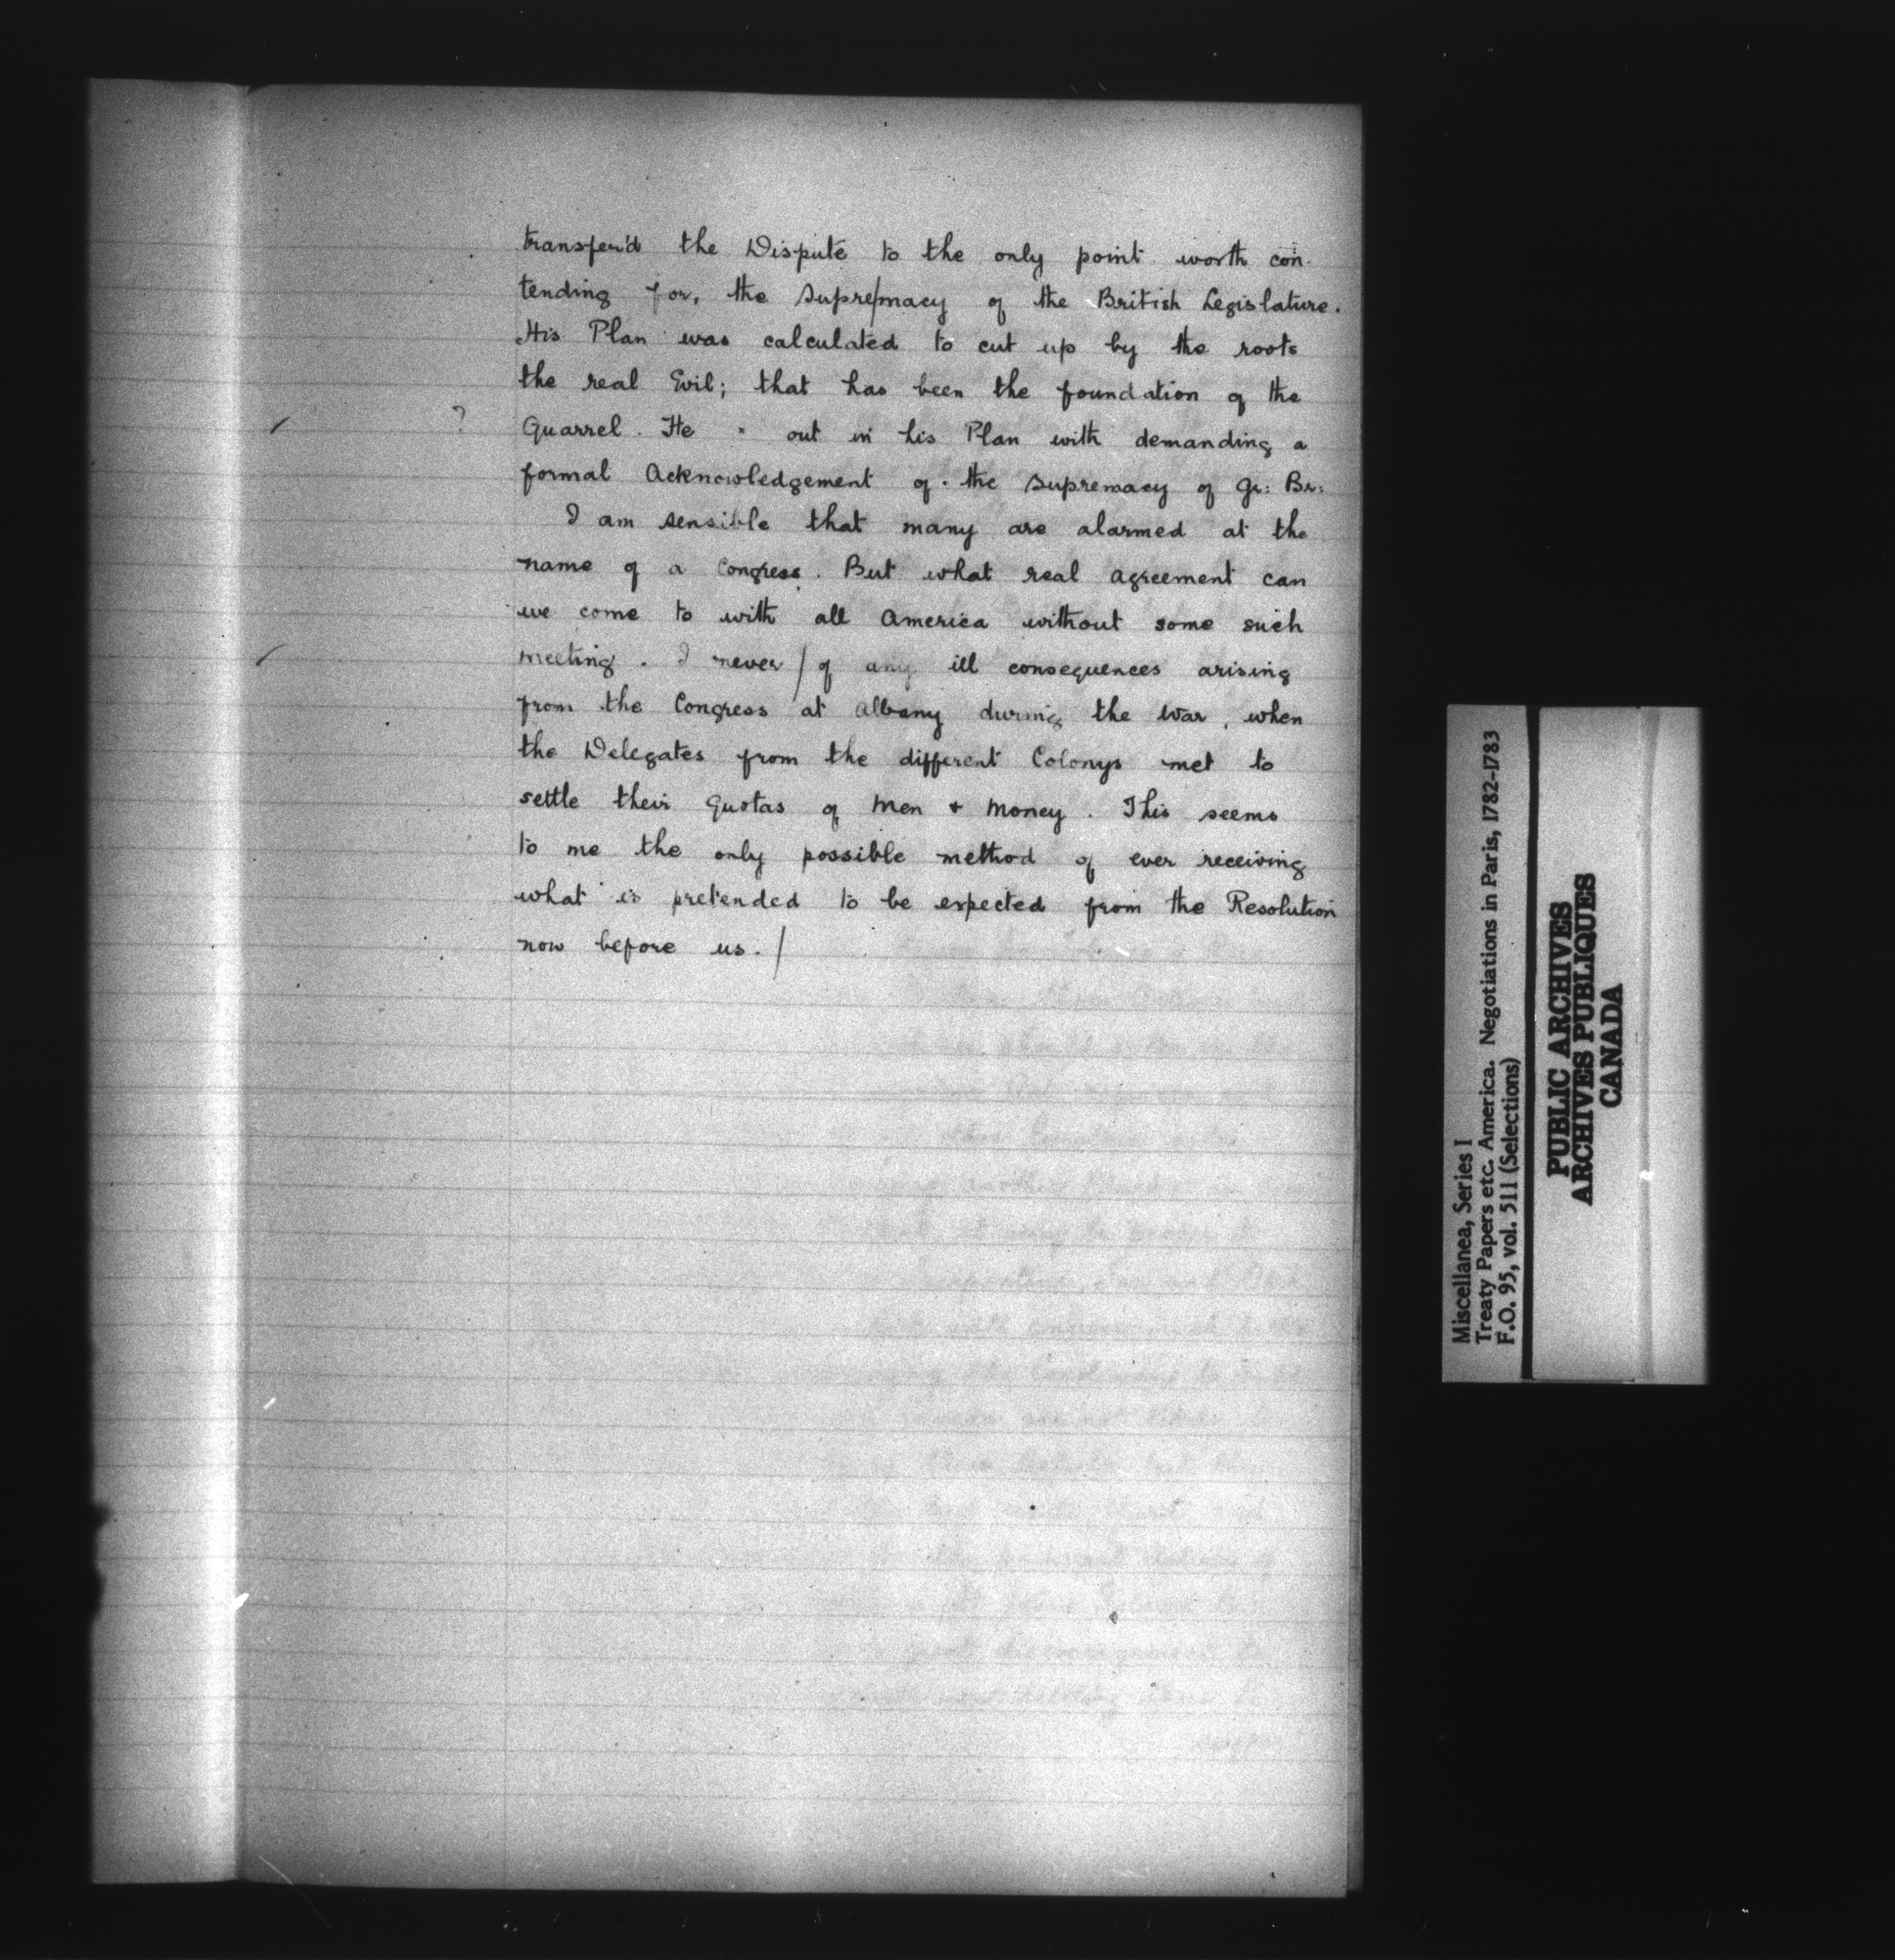 transferr'd the Dispute to the only point worth con-
tending for, the Supremacy of the British Legislature.
His Plan was calculated to cut up by the roots
the real Evil; that has been the foundation of the
? Quarrel. He " out in his Plan with demanding a
formal Acknowledgement of the Supremacy of Gr: Br:
I am sensible that many are alarmed at the
name of a Congress. But what real agreement can
we come to with all America without some such
meeting. I never / of any ill consequences arising
from the Congress at Albany during the War, when
the Delegates from the different Colonys met to
settle their Quotas of Men & Money. This seems
to me the only possible method of ever receiving
what is pretended to be expected from the Resolution
now before us. /
Miscellanea, Series I
Treaty Papers etc. America. Negotiations in Paris, 1782-1783
F.O. 95, vol. 511 (Selections)
PUBLIC ARCHIVES
ARCHIVES PUBLIQUES
CANADA